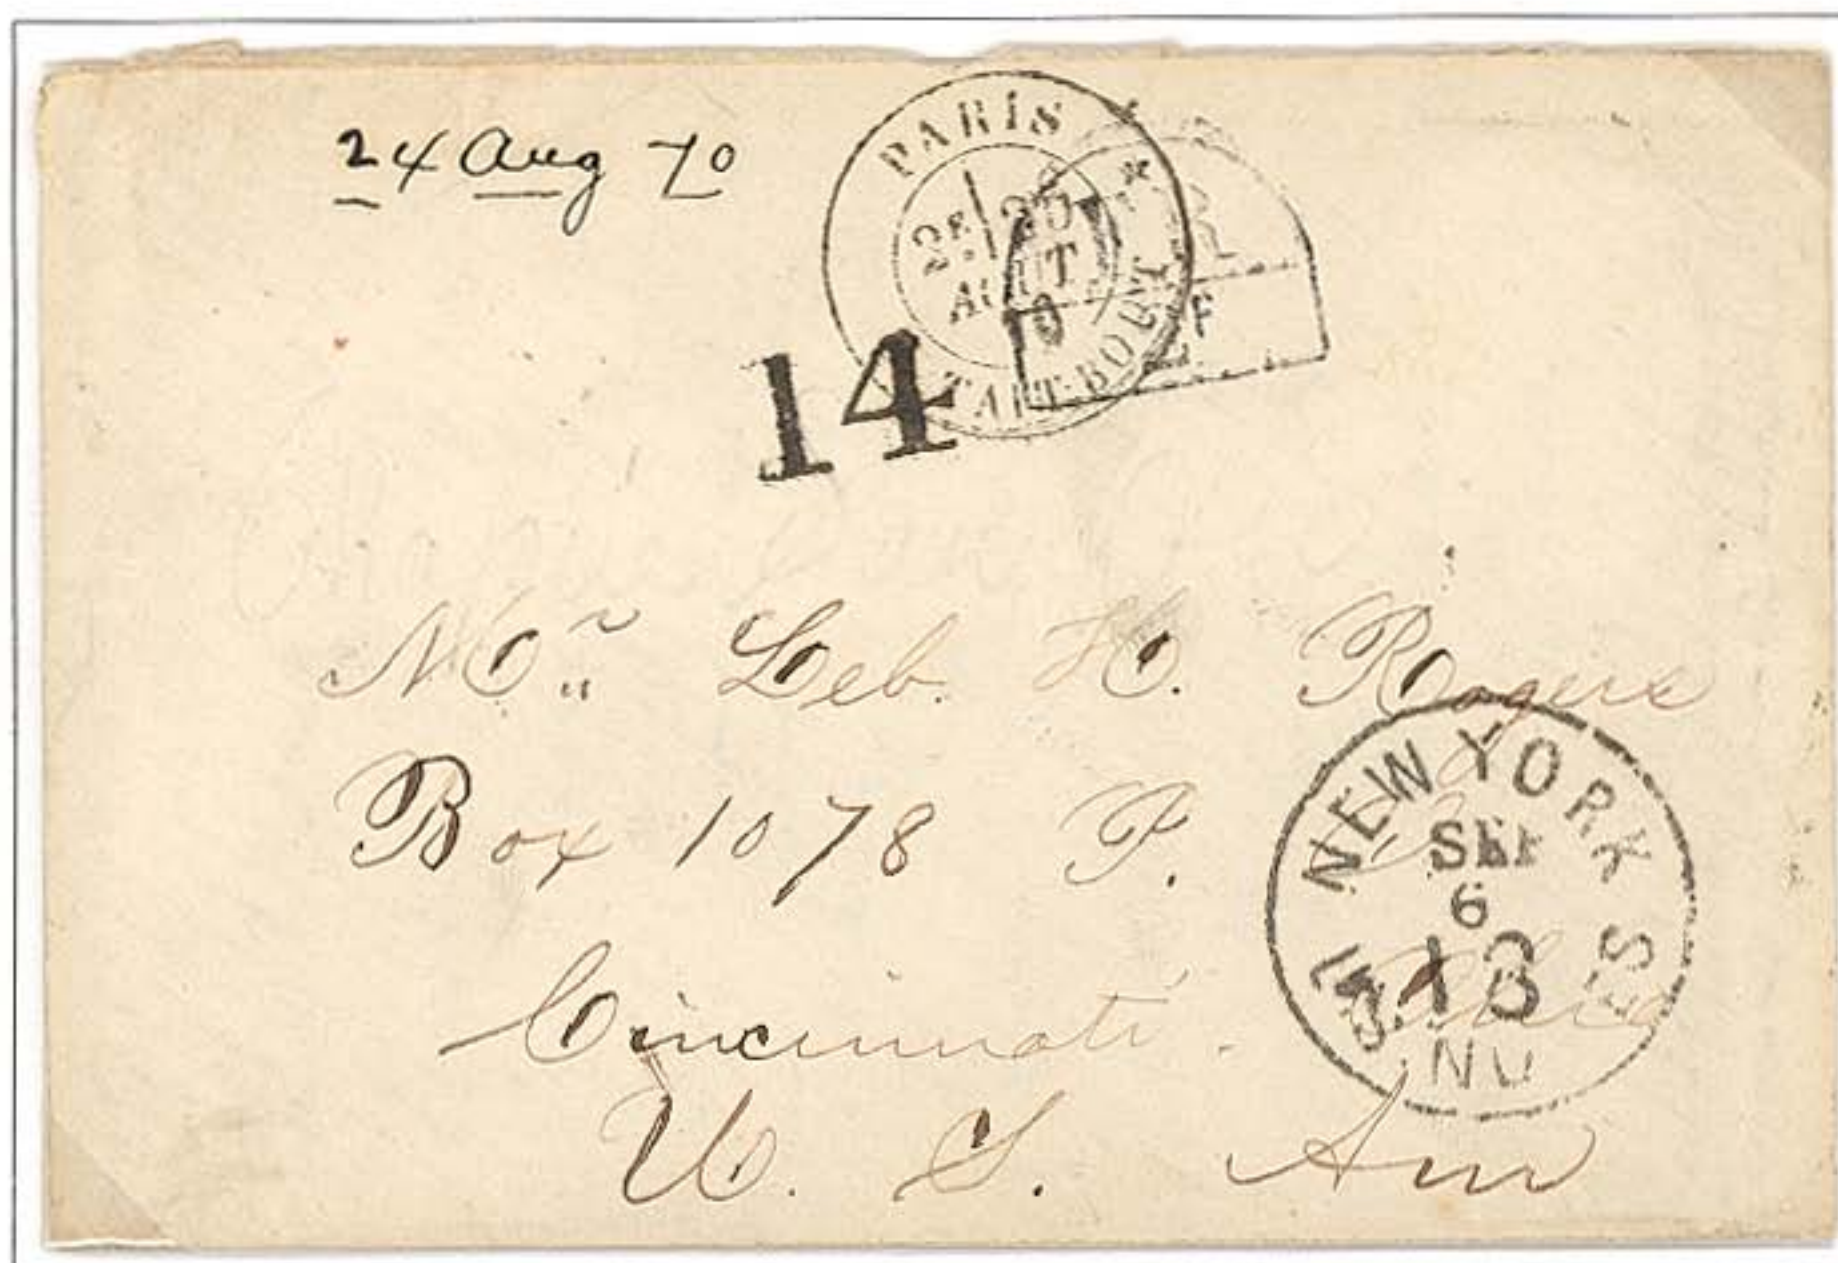 24 Aug 70
PARIS
2E
AOUT
TAITBOUT
14
Mr. Leb. H. Rogers
Box 1078 P.
Cincinnati. Ohio
U. S. Am
NEW YORK
SEP
6
13